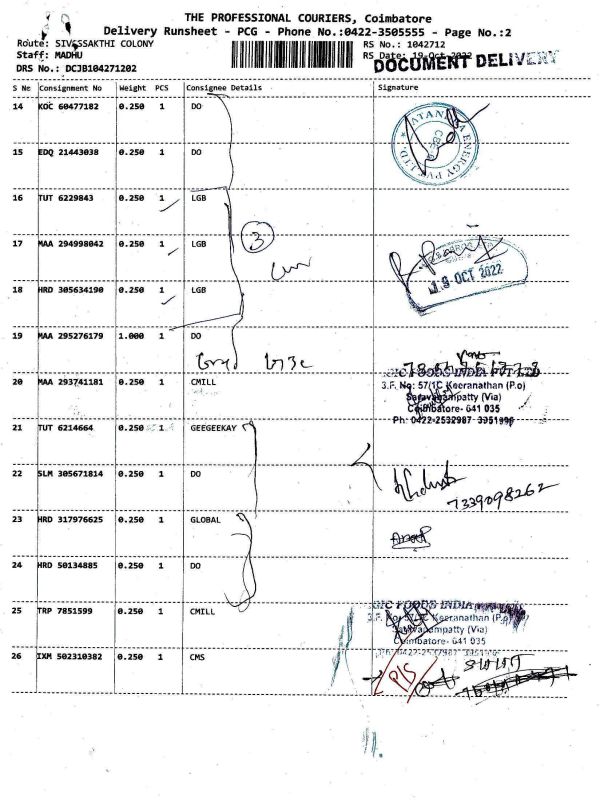 THE PROFESSIONAL COURIERS, Coimbatore
Delivery Runsheet - PCG - Phone No.:0422-3505555 - Page No.:2
Route: SIVESSAKTHI COLONY RS No.: 1042712
Staff: MADHU RS Date: 19-Oct-2022
DOCUMENT DELIVERY
DRS No.: DCJB104271202
S No Consignment No Weight PCS Consignee Details Signature
14 KOC 60477182 0.250 1 DO
15 EDQ 21443038 0.250 1 DO
16 TUT 6229843 0.250 1 LGB
3
17 MAA 294998042 0.250 1 LGB
19 OCT 2022
18 HRD 305634190 0.250 1 LGB
19 MAA 295276179 1.000 1 DO
20 MAA 293741181 0.250 1 CMILL
GIC FOODS INDIA PVT LTD
S.F. No: 57/1C Keeranathan (P.o)
Saravanampatty (Via)
Coimbatore- 641 035
Ph: 0422-2532987
21 TUT 6214664 0.250 1 GEEGEEKAY
22 SLM 305671814 0.250 1 DO
7339098262
23 HRD 317976625 0.250 1 GLOBAL
24 HRD 50134885 0.250 1 DO
25 TRP 7851599 0.250 1 CMILL
GIC FOODS INDIA
S.F. No: 57/1C Keeranathan (P.o)
Saravanampatty (Via)
Coimbatore- 641 035
26 IXM 502310382 0.250 1 CMS
P/S